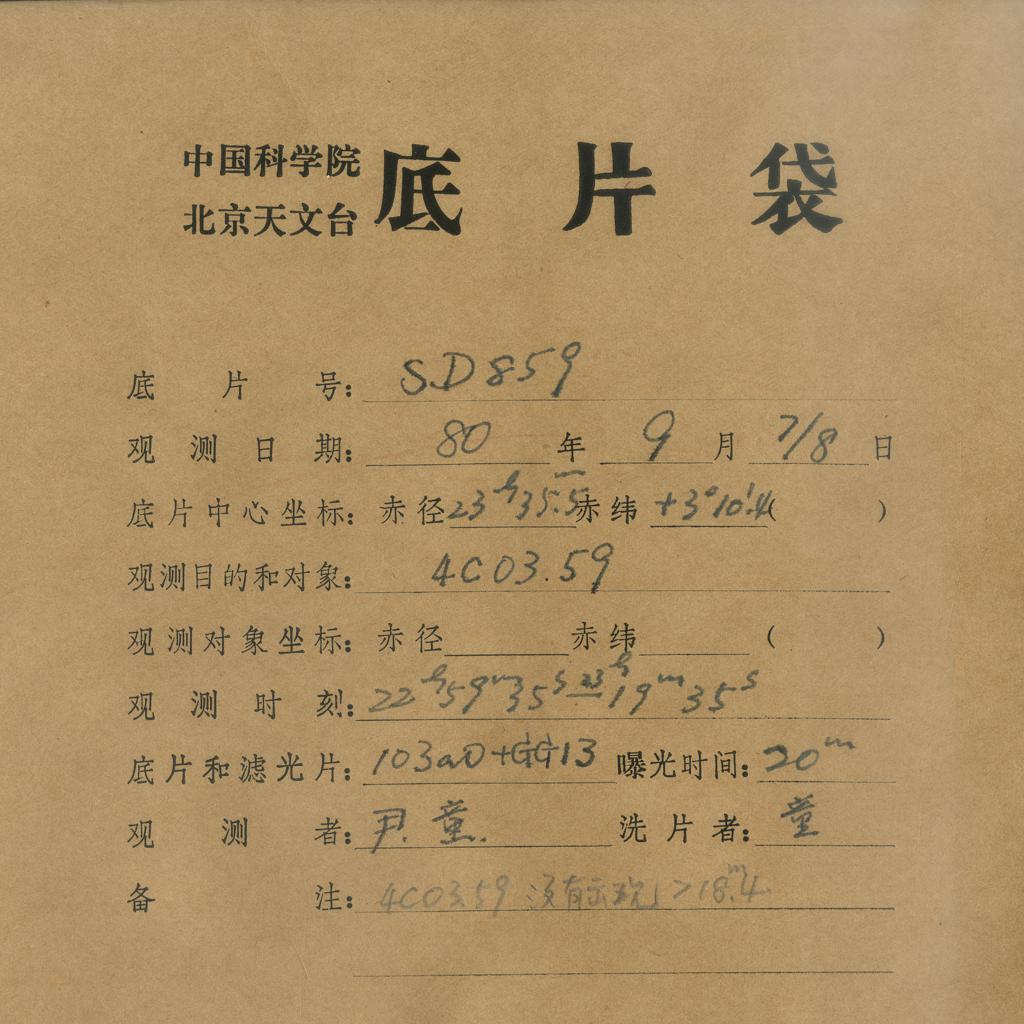 中国科学院
北京天文台
底片袋
底片号: S.D859
观测日期: 80年 9月 7/8日
底片中心坐标: 赤径23ʰ35.5 赤纬+3°10'.4( )
观测目的和对象: 4C03.59
观测对象坐标: 赤径 赤纬 ( )
观测时刻: 22ʰ59ᵐ35ˢ—23ʰ19ᵐ35ˢ
底片和滤光片: 103aO+GG13 曝光时间: 20ᵐ
观测者: 尹.童. 洗片者: 童
备注: 4C03.59 没有出现 >18ᵐ.4